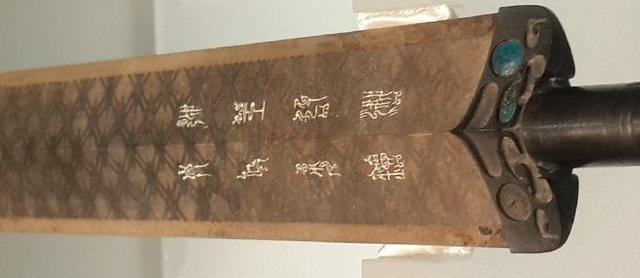 越王鳩淺
自乍用鐱